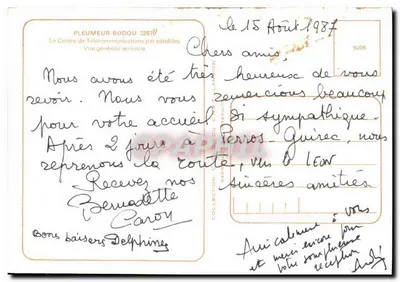 PLEUMEUR BODOU
Le Centre de Télécommunications par satellites
Vue générale aérienne
le 15 Août 1987
Chers amis,
Nous avons été très heureux de vous
revoir. Nous vous remercions beaucoup
pour votre accueil si sympathique.
Après 2 jours à Perros-Guirec, nous
reprenons la route, vers
Recevez nos sincères amitiés
Bernadette
Caron
Bons baisers Delphine
Amicalement à vous
et merci encore pour
votre
réception
André